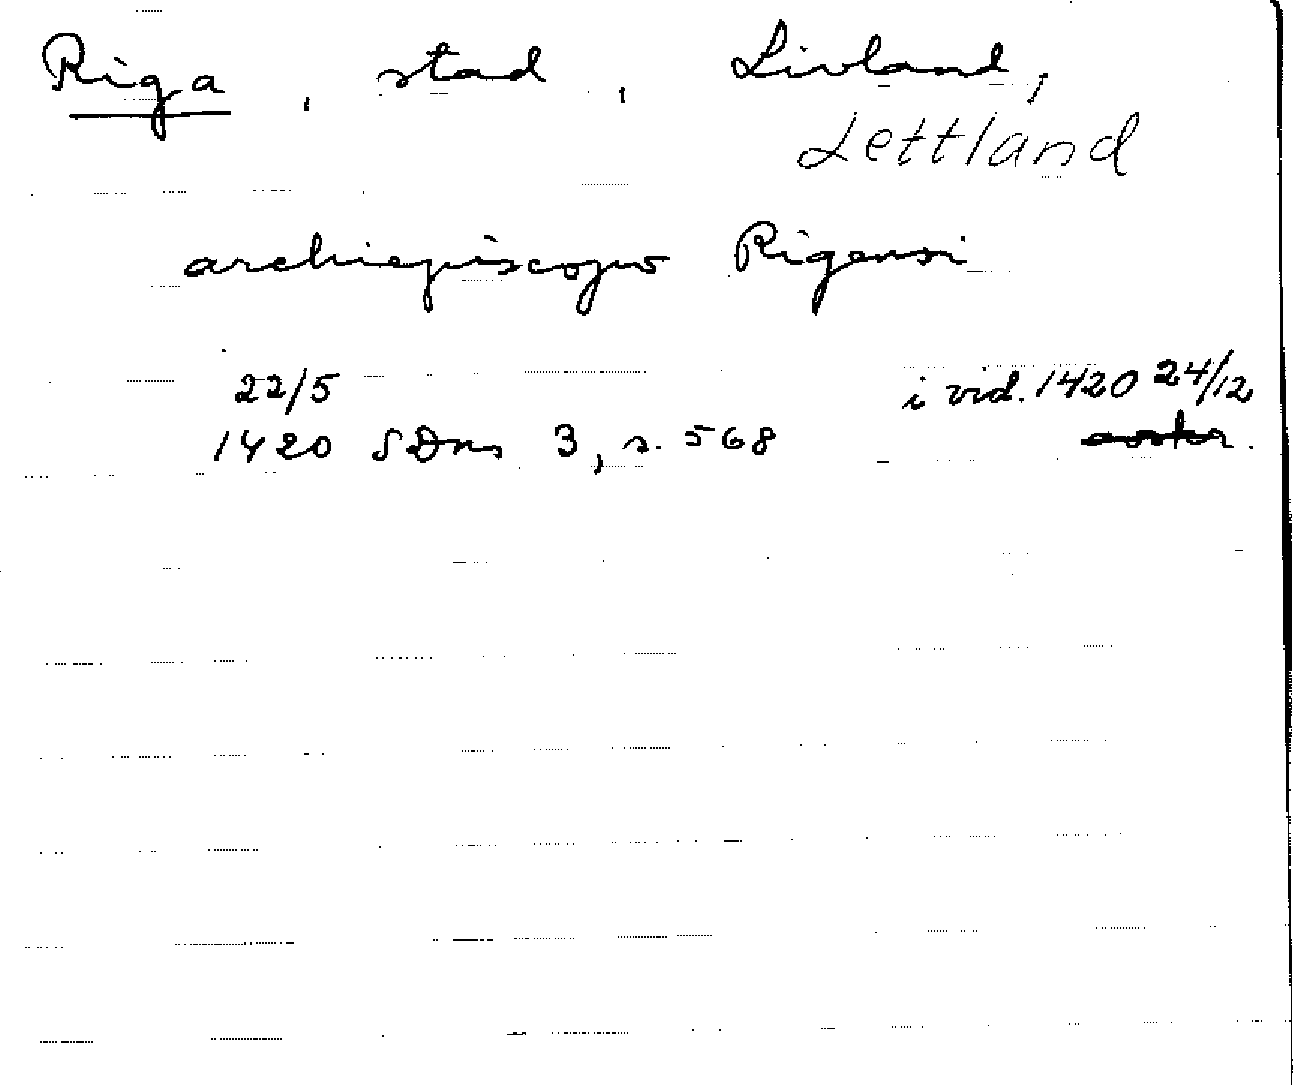 Riga, stad, Livland,
Lettland
archiepiscopo Rigensi
22/5 i vid. 1420 24/12
1420 SDns 3, s. 568